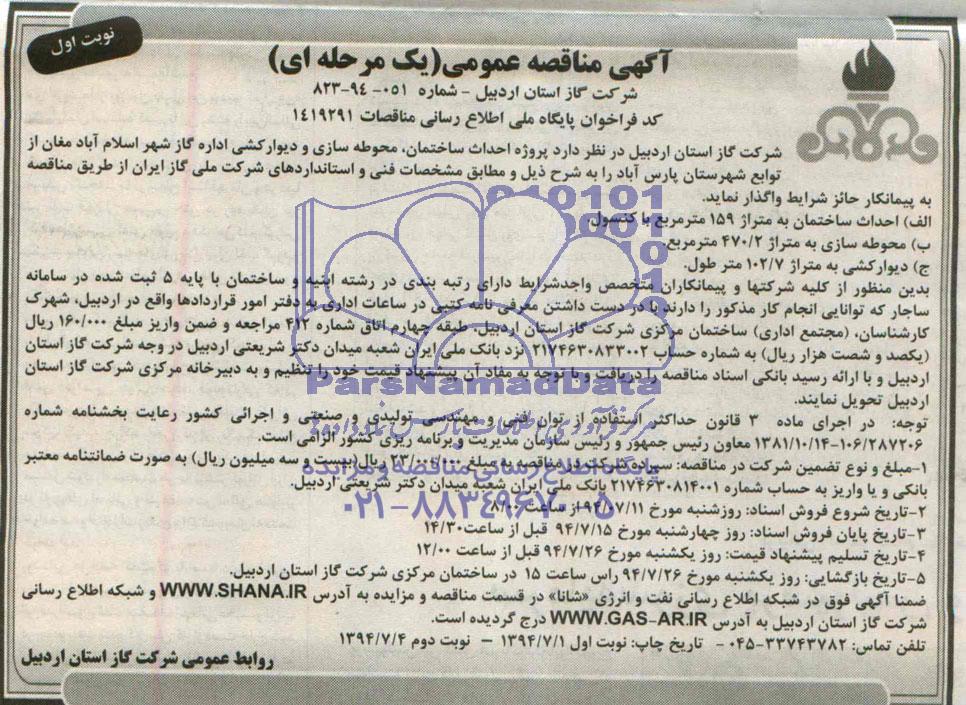 نوبت اول
آگهی مناقصه عمومی(یک مرحله ای)
شرکت گاز استان اردبیل - شماره ۰۵۱-۹۴-۸۲۳
کد فراخوان پایگاه ملی اطلاع رسانی مناقصات ۱۴۱۹۲۹۱
شرکت گاز استان اردبیل در نظر دارد پروژه احداث ساختمان، محوطه سازی و دیوارکشی اداره گاز شهر اسلام آباد مغان از
توابع شهرستان پارس آباد را به شرح ذیل و مطابق مشخصات فنی و استانداردهای شرکت ملی گاز ایران از طریق مناقصه
به پیمانکار حائز شرایط واگذار نماید.
الف) احداث ساختمان به متراژ ۱۵۹ مترمربع با کنسول.
ب) محوطه سازی به متراژ ۴۷۰/۲ مترمربع.
ج) دیوارکشی به متراژ ۱۰۲/۷ متر طول.
بدین منظور از کلیه شرکتها و پیمانکاران متخصص واجدشرایط دارای رتبه بندی در رشته ابنیه و ساختمان با پایه ۵ ثبت شده در سامانه
ساجار که توانایی انجام کار مذکور را دارند با در دست داشتن معرفی نامه کتبی در ساعات اداری به دفتر امور قراردادها واقع در اردبیل، شهرک
کارشناسان، (مجتمع اداری) ساختمان مرکزی شرکت گاز استان اردبیل، طبقه چهارم اتاق شماره ۴۱۲ مراجعه و ضمن واریز مبلغ ۱۶۰/۰۰۰ ریال
(یکصد و شصت هزار ریال) به شماره حساب ۲۱۷۴۶۳۰۸۳۳۰۰۲ نزد بانک ملی ایران شعبه میدان دکتر شریعتی اردبیل در وجه شرکت گاز استان
اردبیل و با ارائه رسید بانکی اسناد مناقصه را دریافت و با توجه به مفاد آن پیشنهاد قیمت خود را تنظیم و به دبیرخانه مرکزی شرکت گاز استان
اردبیل تحویل نمایند.
توجه: در اجرای ماده ۳ قانون حداکثر استفاده از توان فنی و مهندسی تولیدی و صنعتی و اجرائی کشور رعایت بخشنامه شماره
۱۳۸۱/۱۰/۱۴-۱۰۶/۲۸۷۲۰۶ معاون رئیس جمهور و رئیس سازمان مدیریت و برنامه ریزی کشور الزامی است.
۱-مبلغ و نوع تضمین شرکت در مناقصه: سپرده شرکت در مناقصه به مبلغ ۲۳/۰۰۰/۰۰۰ ریال(بیست و سه میلیون ریال) به صورت ضمانتنامه معتبر
بانکی و یا واریز به حساب شماره ۲۱۷۴۶۳۰۸۱۴۰۰۱ بانک ملی ایران شعبه میدان دکتر شریعتی اردبیل.
۲-تاریخ شروع فروش اسناد: روزشنبه مورخ ۹۴/۰۷/۱۱ از ساعت ۸/۰۰
۳-تاریخ پایان فروش اسناد: روز چهارشنبه مورخ ۹۴/۷/۱۵ قبل از ساعت۱۴/۳۰
۴-تاریخ تسلیم پیشنهاد قیمت: روز یکشنبه مورخ ۹۴/۷/۲۶ قبل از ساعت ۱۲/۰۰
۵-تاریخ بازگشایی: روز یکشنبه مورخ ۹۴/۷/۲۶ راس ساعت ۱۵ در ساختمان مرکزی شرکت گاز استان اردبیل.
ضمنا آگهی فوق در شبکه اطلاع رسانی نفت و انرژی «شانا» در قسمت مناقصه و مزایده به آدرس WWW.SHANA.IR و شبکه اطلاع رسانی
شرکت گاز استان اردبیل به آدرس WWW.GAS-AR.IR درج گردیده است.
تلفن تماس: ۳۳۷۴۳۷۸۲-۰۴۵ - تاریخ چاپ: نوبت اول ۱۳۹۴/۷/۱ – نوبت دوم ۱۳۹۴/۷/۴
روابط عمومی شرکت گاز استان اردبیل
ParsNamadData
پایگاه اطلاع رسانی مناقصه و مزایده
۰۲۱-۸۸۳۴۹۶۷۰-۵